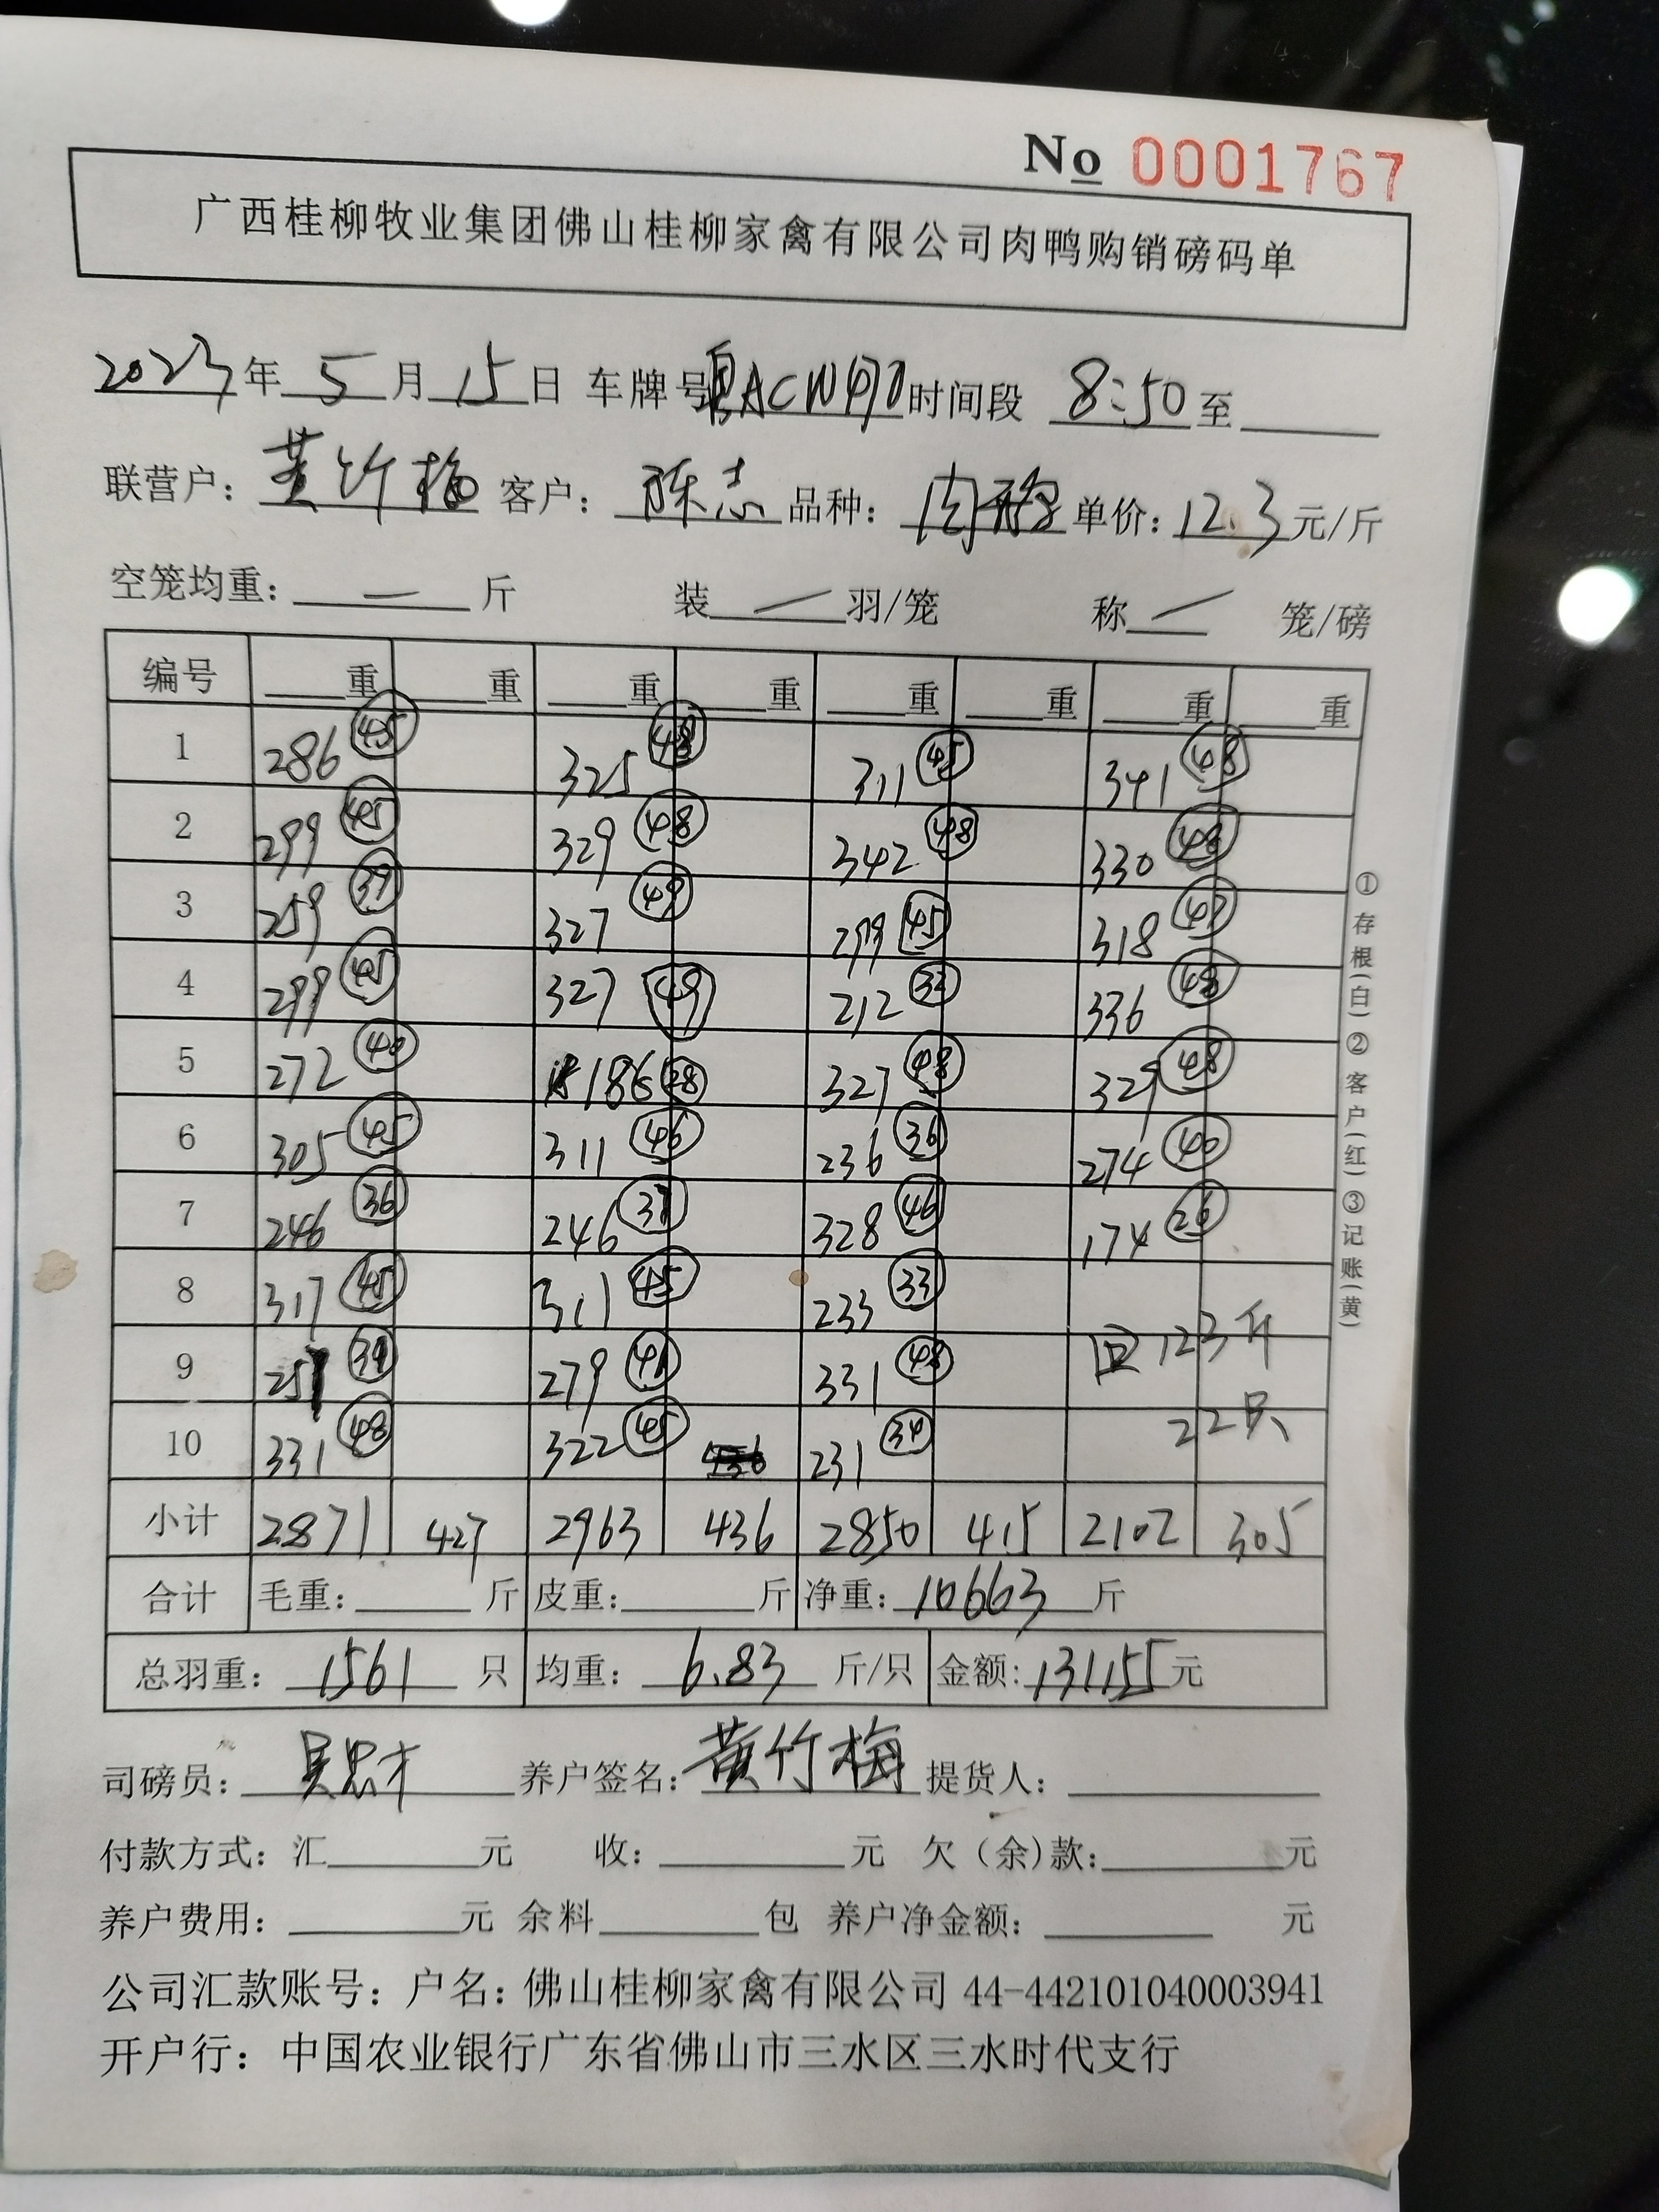 No 0001767
广西桂柳牧业集团佛山桂柳家禽有限公司肉鸭购销磅码单
2023年 5 月 15 日 车牌号 粤ACW 时间段 8:50 至
联营户: 黄竹梅 客户: 陈志 品种: 肉鸭 单价: 12.3 元/斤
空笼均重: — 斤 装 — 羽/笼 称 — 笼/磅
编号 重 重 重 重 重 重 重 重
1 286 45 325 48 311 45 341 48
2 299 45 329 48 342 48 330 48
3 259 39 327 49 299 45 318 47
4 299 45 327 49 212 33 336 48
5 272 40 186 28 327 48 329 48
6 305 45 311 46 236 36 274 40
7 246 36 246 37 328 46 174 26
8 317 45 311 45 233 33
9 257 39 279 41 331 48 回 123斤
10 331 48 322 45 231 34 22只
小计 2871 427 2963 436 2850 415 2102 305
合计 毛重: 斤 皮重: 斤 净重: 10663 斤
总羽重: 1561 只 均重: 6.83 斤/只 金额: 131155 元
司磅员: 养户签名: 黄竹梅 提货人:
付款方式: 汇 元 收: 元 欠(余)款: 元
养户费用: 元 余料 包 养户净金额: 元
公司汇款账号: 户名: 佛山桂柳家禽有限公司 44-442101040003941
开户行: 中国农业银行广东省佛山市三水区三水时代支行
①存根(白)②客户(红)③记账(黄)